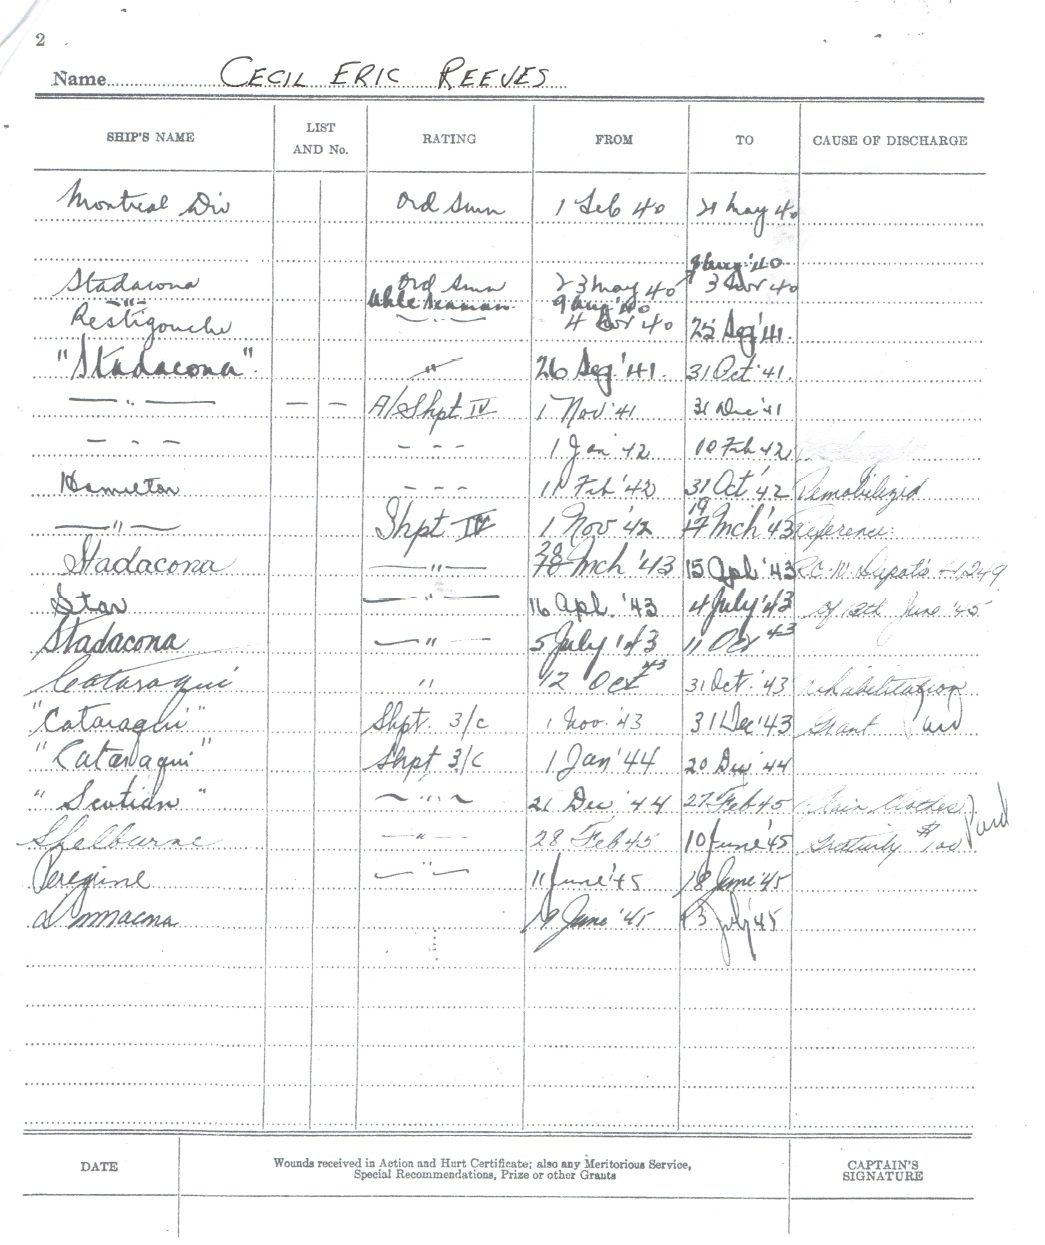 2
Name CECIL ERIC REEVES
SHIP'S NAME LIST AND No. RATING FROM TO CAUSE OF DISCHARGE
Montreal Div Ord Smn 1 Feb 40 May 40
8 Aug '40
Stadacona Ord Smn 23 May 40 3 40
—"— Able Seaman 9 Aug '40
Restigouche —"— 4 40 25 '41.
"Stadacona" " 26 '41. 31 Oct '41.
—"— — — A/Shpt IV 1 Nov '41 31 Dec '41
- - - - - - 1 Jan '42 10 Feb 42
Hamilton - - - 11 Feb '42 31 Oct '42 Demobilized
—"— Shpt IV 1 Nov '42 19 17 Mch '43 Reference:
Stadacona —"— Mch '43 15 Apl '43 R.C.N. Depot's 4249
Star —"— 16 Apl. '43 4 July '43 of 12th June '45
Stadacona —"— 5 July '43 11 Oct 43
Cataraqui " 12 Oct 43 31 Oct. '43 Rehabilitation
"Cataraqui" Shpt. 3/c 1 Nov. '43 31 Dec '43 Grant Paid
"Cataraqui" Shpt 3/c 1 Jan '44 20 Dec '44
"Scotian" —"— 21 Dec '44 27 Feb 45 Plain Clothes
Shelburne —"— 28 Feb 45 10 June '45 Gratuity $100 Paid
Peregrine —"— 11 June '45 18 June '45
19 June '45 July '45
DATE Wounds received in Action and Hurt Certificate; also any Meritorious Service, CAPTAIN'S
Special Recommendations, Prize or other Grants SIGNATURE